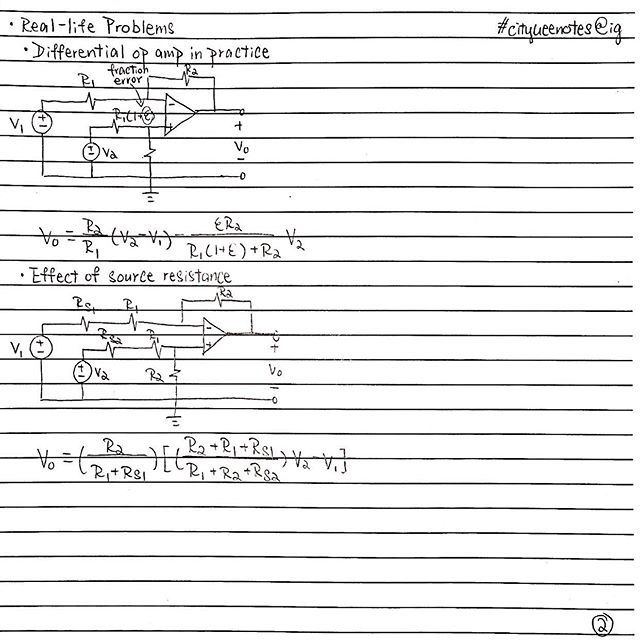 • Real-life Problems #cityueenotes@ig
• Differential op amp in practice
fraction error
R₁ R₂
R₁(1+ε)
V₁ V₂ V₀
+
−
V₀ = R₂/R₁ (V₂ − V₁) − εR₂/(R₁(1+ε)+R₂) V₂
• Effect of source resistance
Rs₁ R₁ R₂
Rs₂ R₁
V₁ V₂ R₂ V₀
+
−
V₀ = (R₂/(R₁+Rs₁)) [((R₂+R₁+Rs₁)/(R₁+R₂+Rs₂)) V₂ − V₁]
②